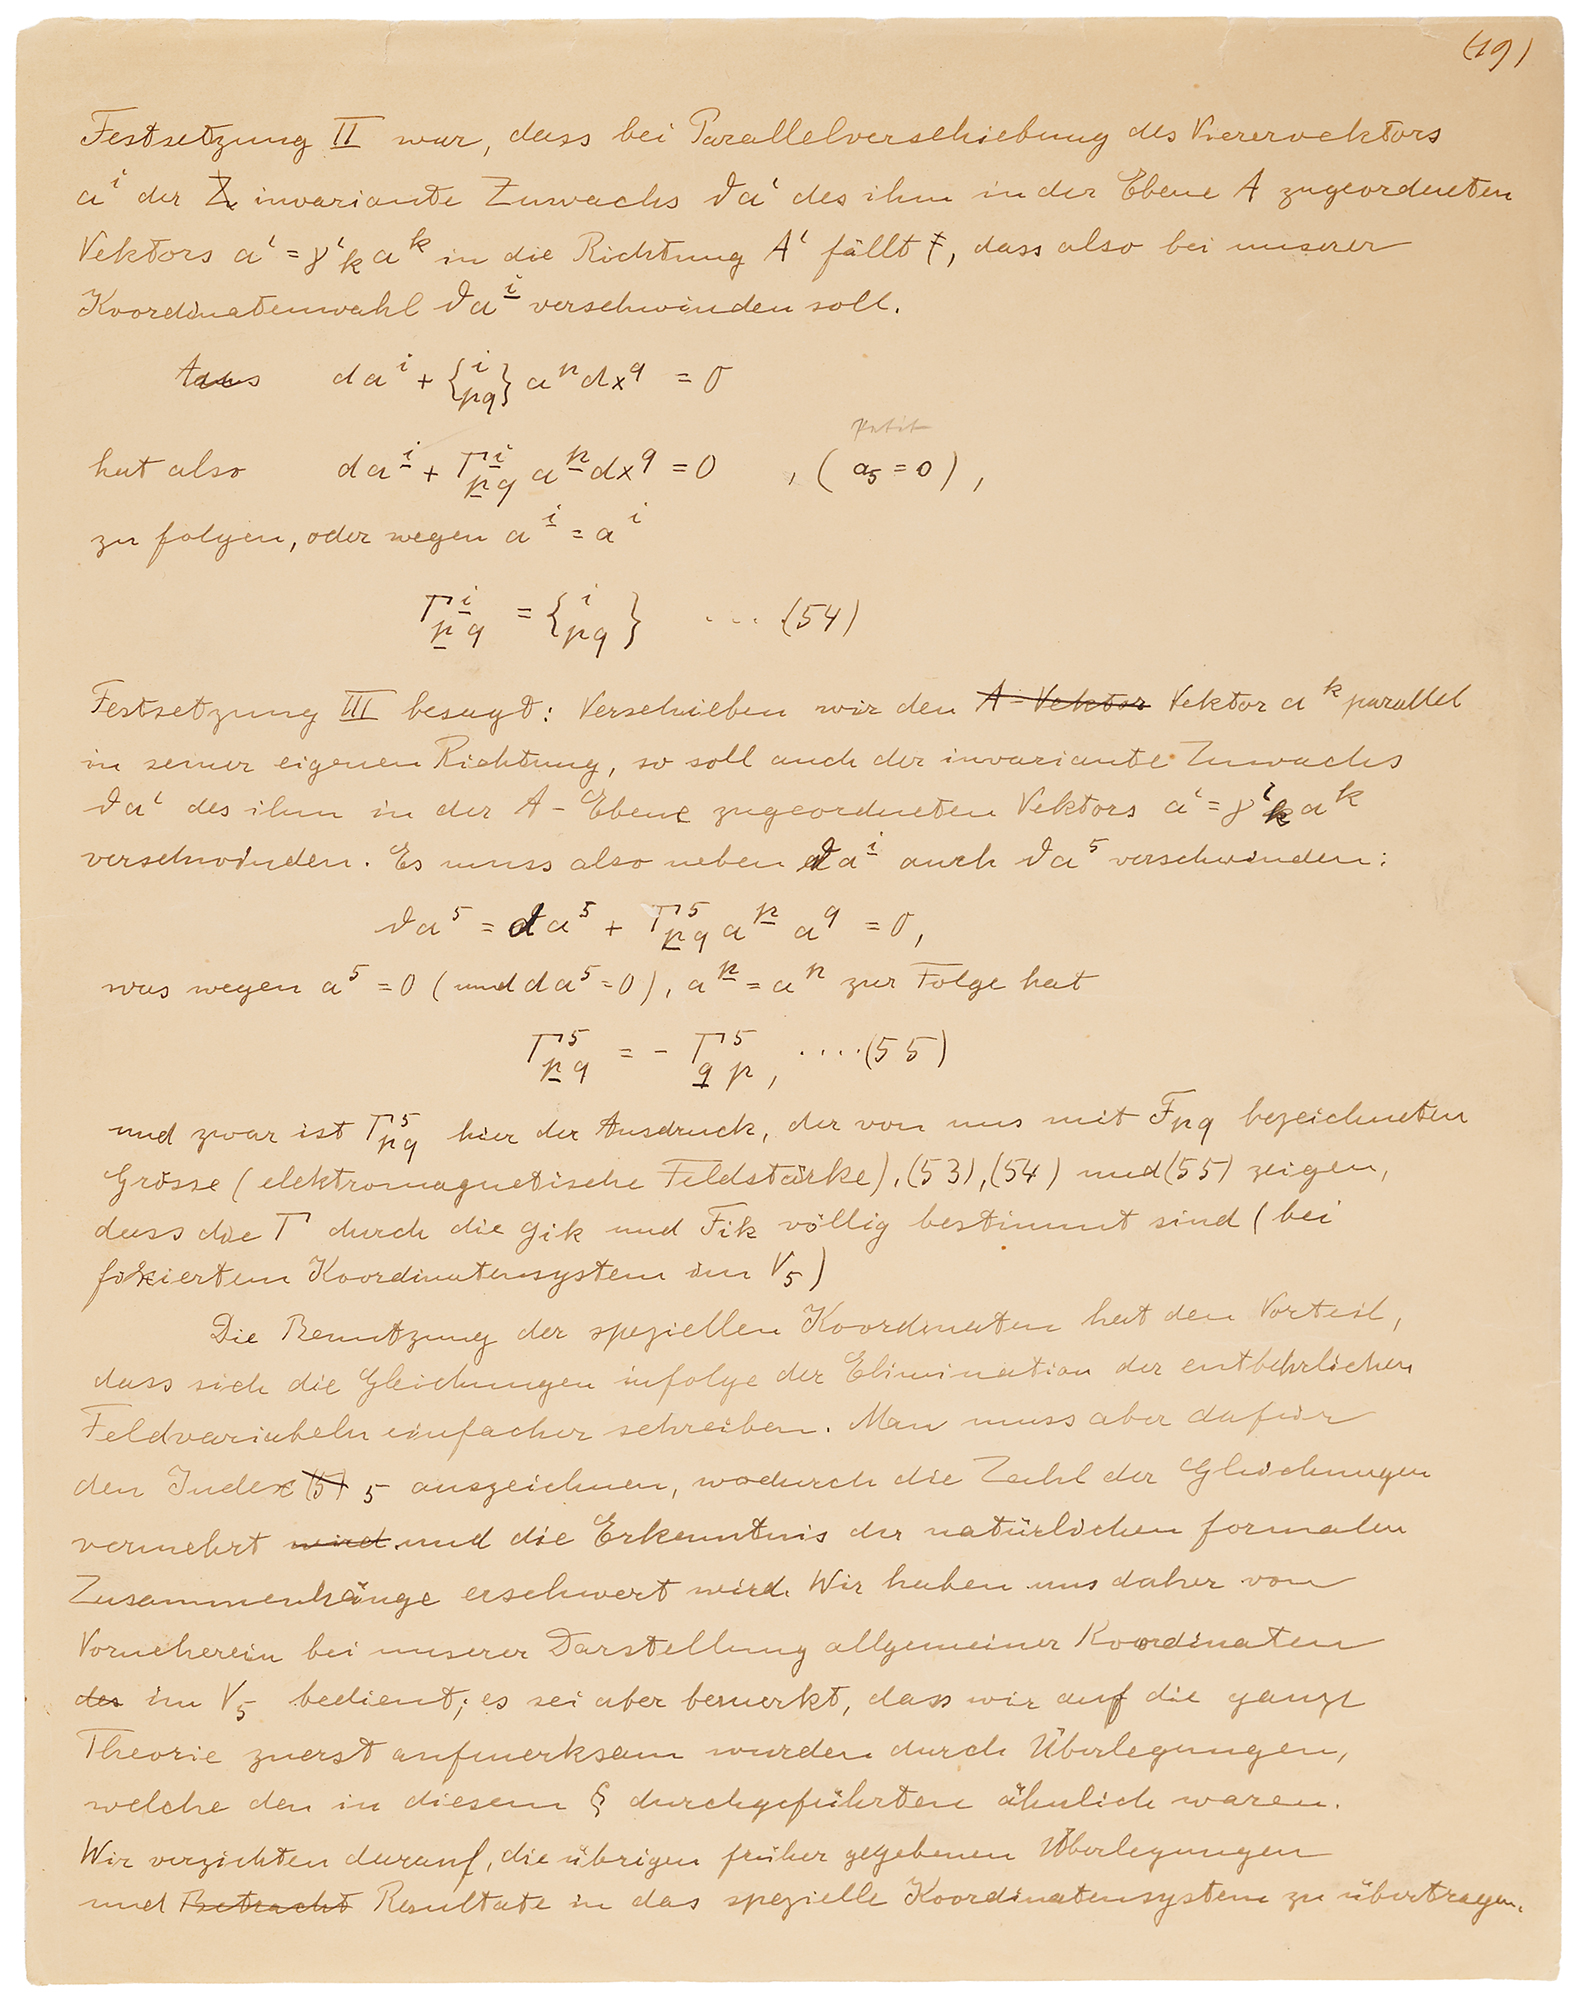 (19)
Festsetzung II war, dass bei Parallelverschiebung des Vierervektors
a^i der invariante Zuwachs ϑa^ι des ihm in der Ebene A zugeordneten
Vektors a^ι = γ^ι_k a^k in die Richtung A^ι fällt, dass also bei unserer
Koordinatenwahl ϑa^i̲ verschwinden soll.
Aus da^i + {^i_pq} a^p dx^q = 0
hat also da^i̲ + Γ^i̲_p̲q a^p̲ dx^q = 0 , (a_5 = 0),
zu folgen, oder wegen a^i̲ = a^i
Γ^i̲_p̲q = {^i_pq} ... (54)
Festsetzung III besagt: Verschieben wir den A-Vektor Vektor a^k parallel
in seiner eigenen Richtung, so soll auch der invariante Zuwachs
ϑa^ι des ihm in der A-Ebene zugeordneten Vektors a^ι = γ^ι_k a^k
verschwinden. Es muss also neben ϑa^i̲ auch ϑa^5 verschwinden:
ϑa^5 = da^5 + Γ^5_p̲q a^p̲ a^q = 0,
was wegen a^5 = 0 (und da^5 = 0), a^p̲ = a^p zur Folge hat
Γ^5_p̲q = - Γ^5_q̲p, ....(55)
und zwar ist Γ^5_pq hier der Ausdruck, der von uns mit F_pq bezeichneten
Grösse (elektromagnetische Feldstärke), (53), (54) und (55) zeigen,
dass die Γ durch die g_ik und F_ik völlig bestimmt sind (bei
fixiertem Koordinatensystem im V_5)
Die Benutzung der speziellen Koordinaten hat den Vorteil,
dass sich die Gleichungen infolge der Elimination der entbehrlichen
Feldvariabeln einfacher schreiben. Man muss aber dafür
den Index (5) 5 auszeichnen, wodurch die Zahl der Gleichungen
vermehrt wird und die Erkenntnis der natürlichen formalen
Zusammenhänge erschwert wird. Wir haben uns daher von
Vorneherein bei unserer Darstellung allgemeiner Koordinaten
des im V_5 bedient; es sei aber bemerkt, dass wir auf die ganze
Theorie zuerst aufmerksam wurden durch Überlegungen,
welche den in diesem § durchgeführten ähnlich waren.
Wir verzichten darauf, die übrigen früher gegebenen Überlegungen
und Betracht Resultate in das spezielle Koordinatensystem zu übertragen.